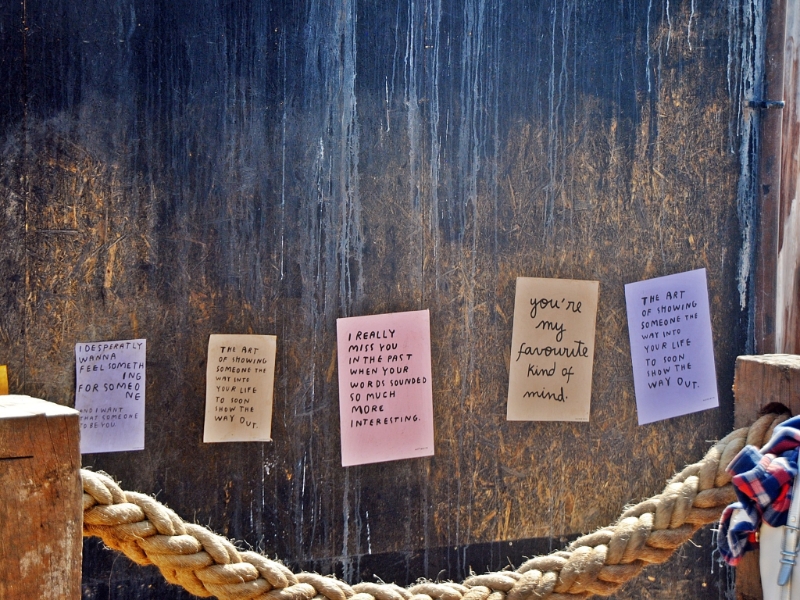 I DESPERATLY
WANNA
FEEL SOMETH
ING
FOR SOMEO
NE
AND I WANT
THAT SOMEONE
TO BE YOU.
THE ART
OF SHOWING
SOMEONE THE
WAY INTO
YOUR LIFE
TO SOON
SHOW THE
WAY OUT.
I REALLY
MISS YOU
IN THE PAST
WHEN YOUR
WORDS SOUNDED
SO MUCH
MORE
INTERESTING.
you're
my
favourite
kind of
mind.
THE ART
OF SHOWING
SOMEONE THE
WAY INTO
YOUR LIFE
TO SOON
SHOW THE
WAY OUT.